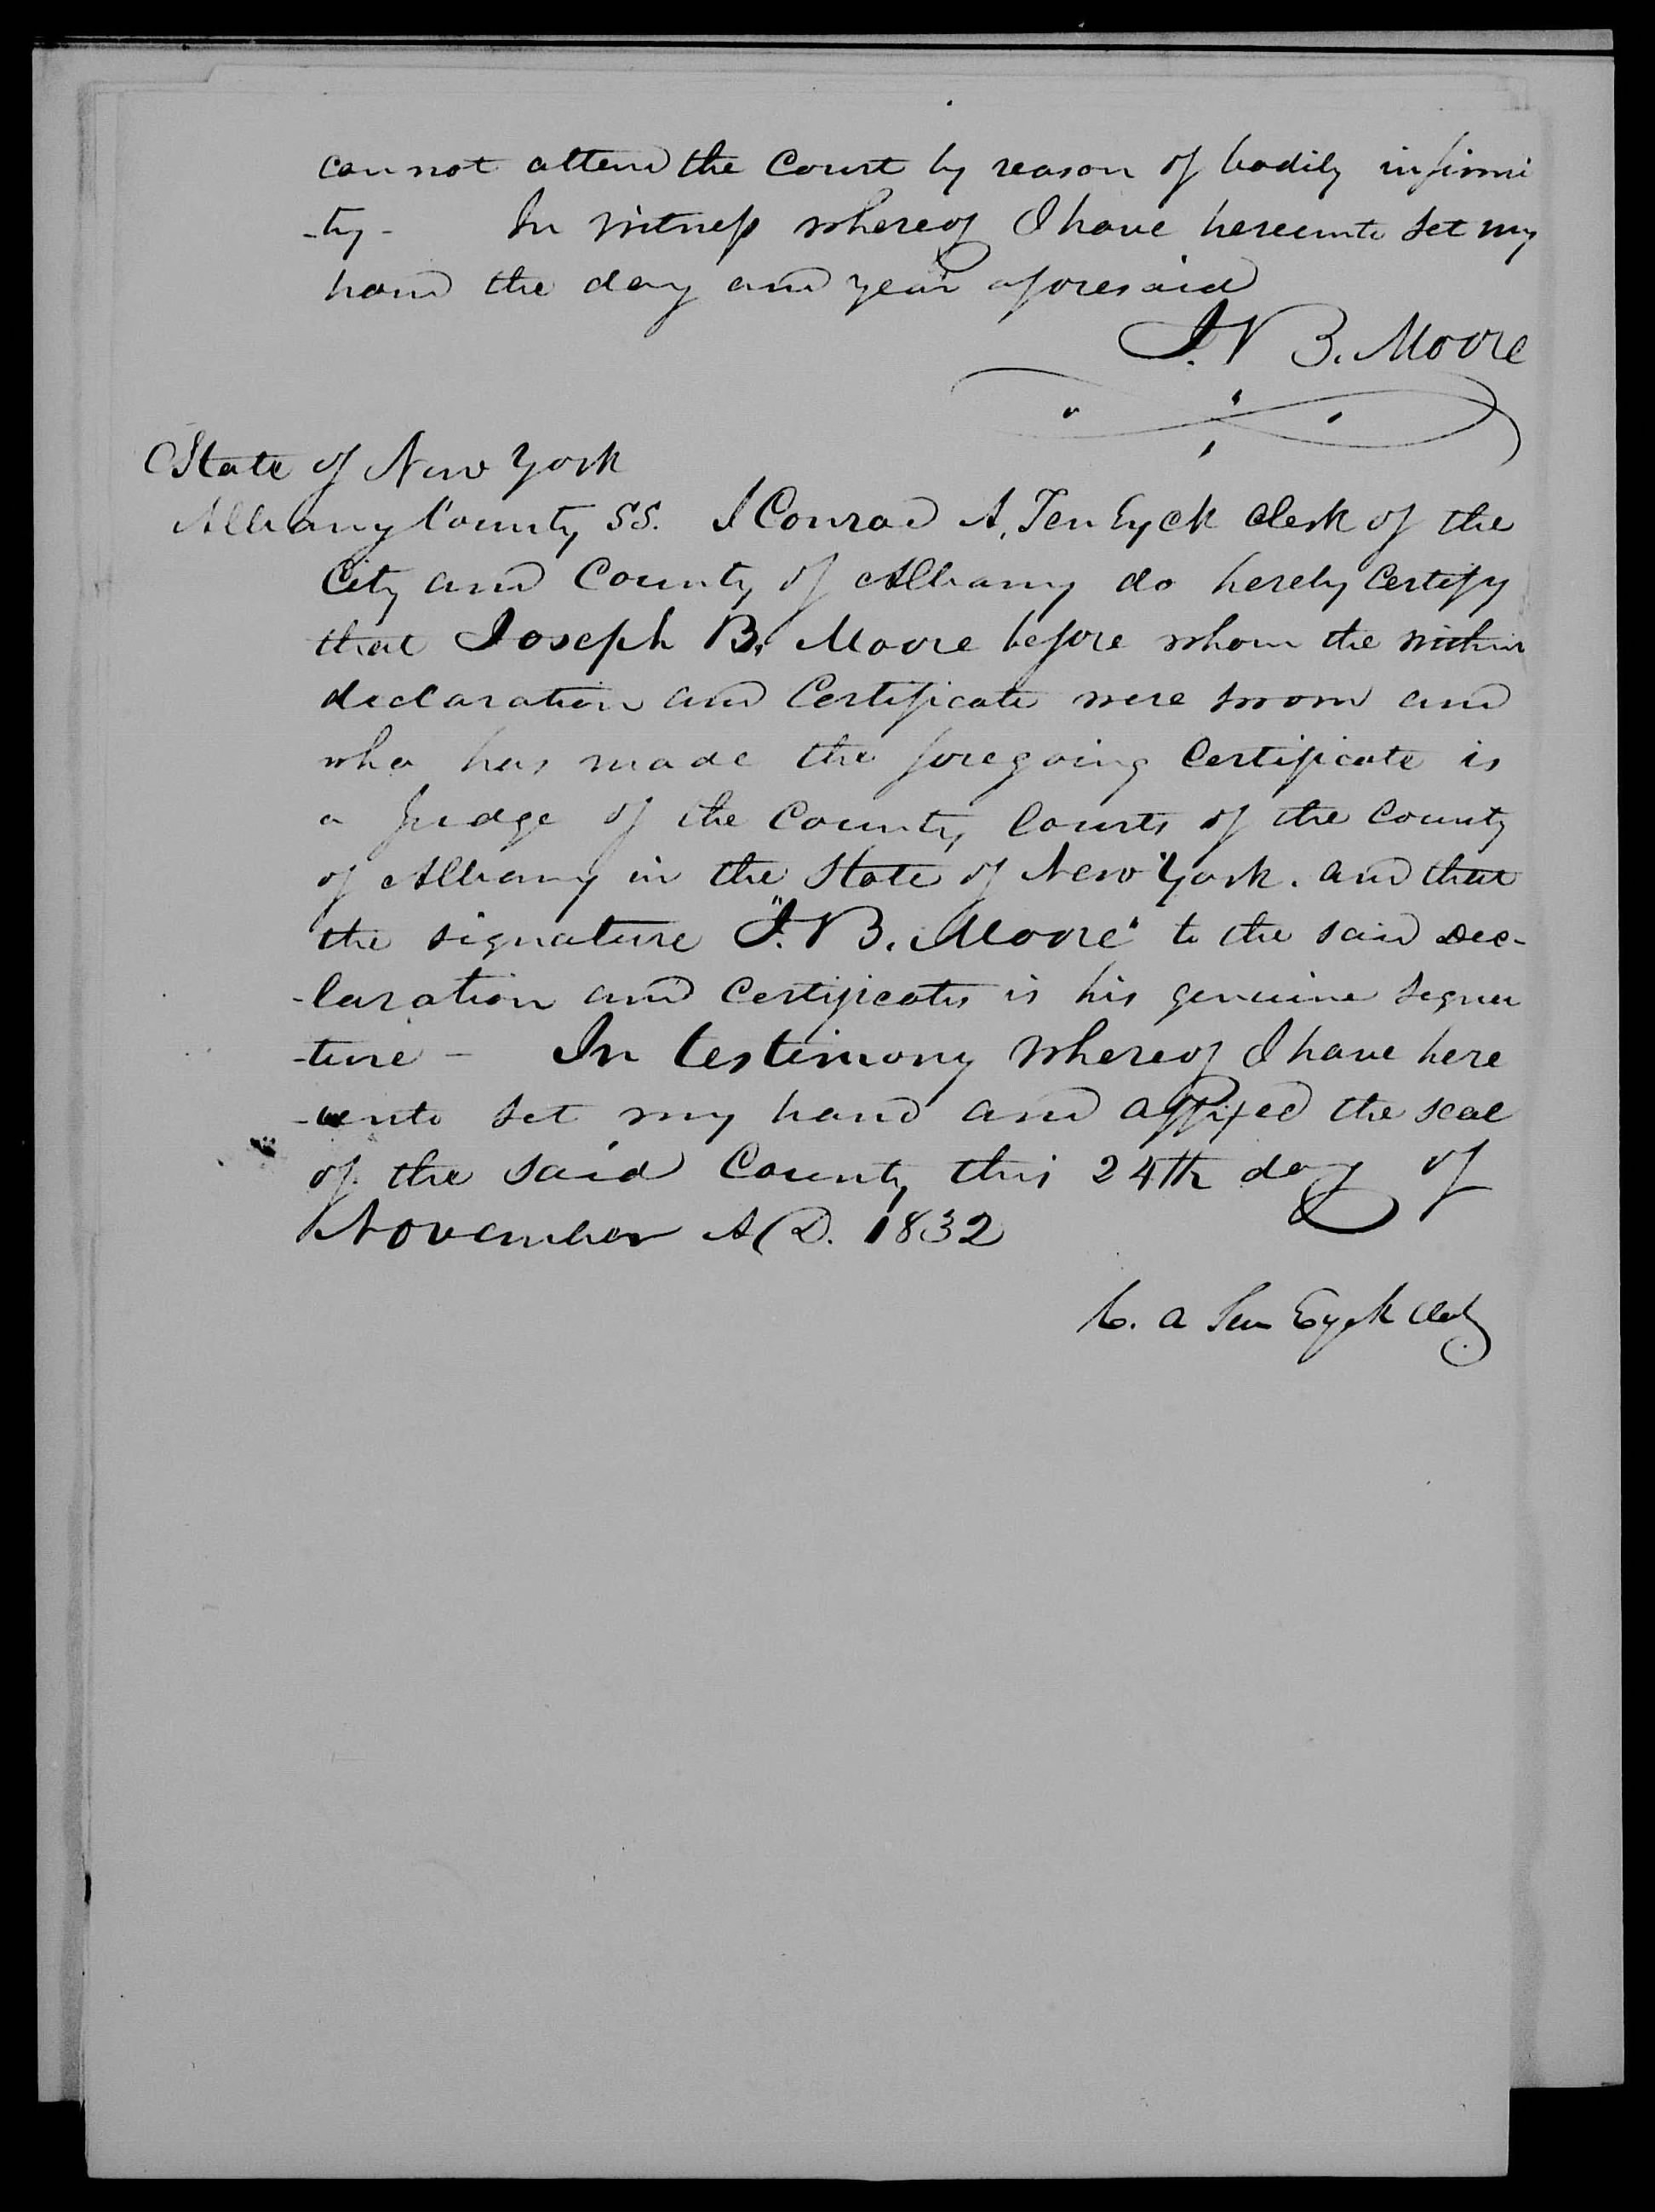 cannot attend the Court by reason of bodily infirmi
-ty - In witness whereof I have hereunto set my
hand the day and year aforesaid
J. B. Moore
State of New York
Albany County SS. I Conrad A. Ten Eyck Clerk of the
City and County of Albany do hereby Certify
that Joseph B. Moore before whom the within
declaration and Certificate were sworn and
who has made the foregoing Certificate is
a Judge of the County Courts of the County
of Albany in the State of New York. and that
the signature "J. B. Moore" to the said Dec-
-laration and Certificates is his genuine signa
-ture - In testimony whereof I have here
-unto set my hand and affixed the seal
of the said County this 24th day of
November A.D. 1832
C. A Ten Eyck Clerk